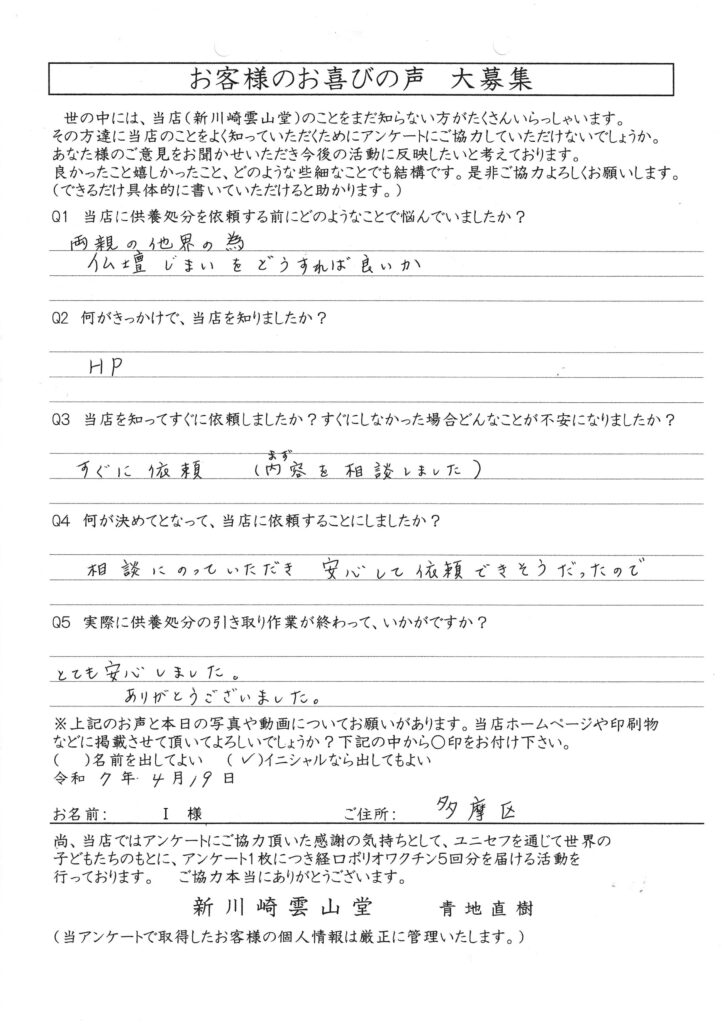 お客様のお喜びの声　大募集
世の中には、当店(新川崎雲山堂)のことをまだ知らない方がたくさんいらっしゃいます。
その方達に当店のことをよく知っていただくためにアンケートにご協力していただけないでしょうか。
あなた様のご意見をお聞かせいただき今後の活動に反映したいと考えております。
良かったこと嬉しかったこと、どのような些細なことでも結構です。是非ご協力よろしくお願いします。
(できるだけ具体的に書いていただけると助かります。)
Q1 当店に供養処分を依頼する前にどのようなことで悩んでいましたか？
両親の他界の為
仏壇じまいをどうすれば良いか
Q2 何がきっかけで、当店を知りましたか？
HP
Q3 当店を知ってすぐに依頼しましたか？すぐにしなかった場合どんなことが不安になりましたか？
まず
すぐに依頼　(内容を相談しました)
Q4 何が決めてとなって、当店に依頼することにしましたか？
相談にのっていただき 安心して依頼できそうだったので
Q5 実際に供養処分の引き取り作業が終わって、いかがですか？
とても安心しました。
ありがとうございました。
※上記のお声と本日の写真や動画についてお願いがあります。当店ホームページや印刷物
などに掲載させて頂いてよろしいでしょうか？下記の中から〇印をお付け下さい。
(　)名前を出してよい　(✓)イニシャルなら出してもよい
令和 7年 4月19日
お名前:　I 様　ご住所:　多摩区
尚、当店ではアンケートにご協力頂いた感謝の気持ちとして、ユニセフを通じて世界の
子どもたちのもとに、アンケート1枚につき経口ポリオワクチン5回分を届ける活動を
行っております。　ご協力本当にありがとうございます。
新川崎雲山堂　青地直樹
(当アンケートで取得したお客様の個人情報は厳正に管理いたします。)